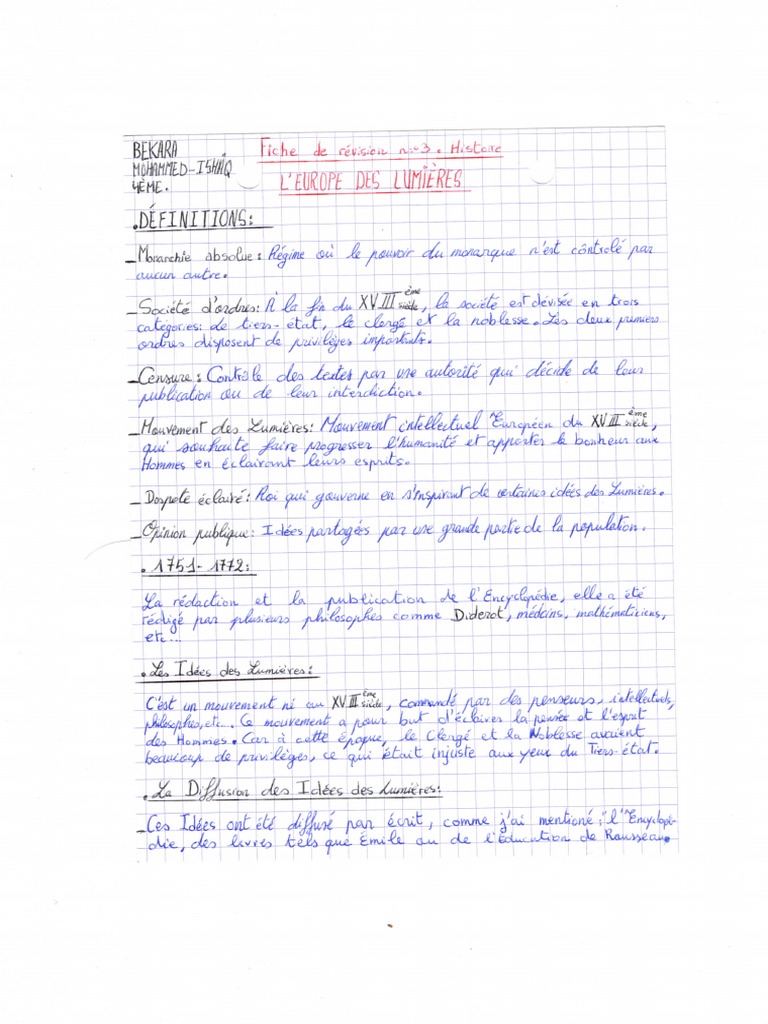 BEKARA
MOHAMMED-ISHAQ
4ÈME.
Fiche de révision n°3. Histoire
L'EUROPE DES LUMIÈRES
.DÉFINITIONS:
_Monarchie absolue: Régime où le pouvoir du monarque n'est côntrolé par
aucun autre.
_Société d'ordres: À la fin du XVIII ème siècle, la société est devisée en trois
categories: le tiers-état, le clergé et la noblesse. Les deux premiers
ordres disposent de privilèges importants.
_Censure: Contrôle des textes par une autorité qui décide de leur
publication ou de leur interdiction.
_Mouvement des Lumières: Mouvement intellectuel Européen du XVIII ème siècle,
qui souhaite faire progresser l'humanité et apporter le bonheur aux
Hommes en éclairant leurs esprits.
_Despote éclairé: Roi qui gouverne en s'inspirant de certaines idées des Lumières.
_Opinion publique: Idées partagées par une grande partie de la population.
. 1751-1772:
La rédaction et la publication de l'Encyclopédie, elle a été
rédigé par plusieurs philosophes comme Diderot, médcins, mathématiciens,
etc...
.Les Idées des Lumières:
C'est un mouvement né au XVIII ème siècle, commandé par des penseurs, intellectuels,
philosophes, etc... Ce mouvement a pour but d'éclairer la pensée et l'esprit
des Hommes. Car à cette époque, le Clergé et la Noblesse avaient
beaucoup de privilèges, ce qui était injuste aux yeux du Tiers-état.
.La Diffusion des Idées des Lumières:
_Ces Idées ont été diffusé par écrit, comme j'ai mentioné: "l'Encyclopé-
die, des livres tels que Émile ou de l'Éducation de Rousseau.